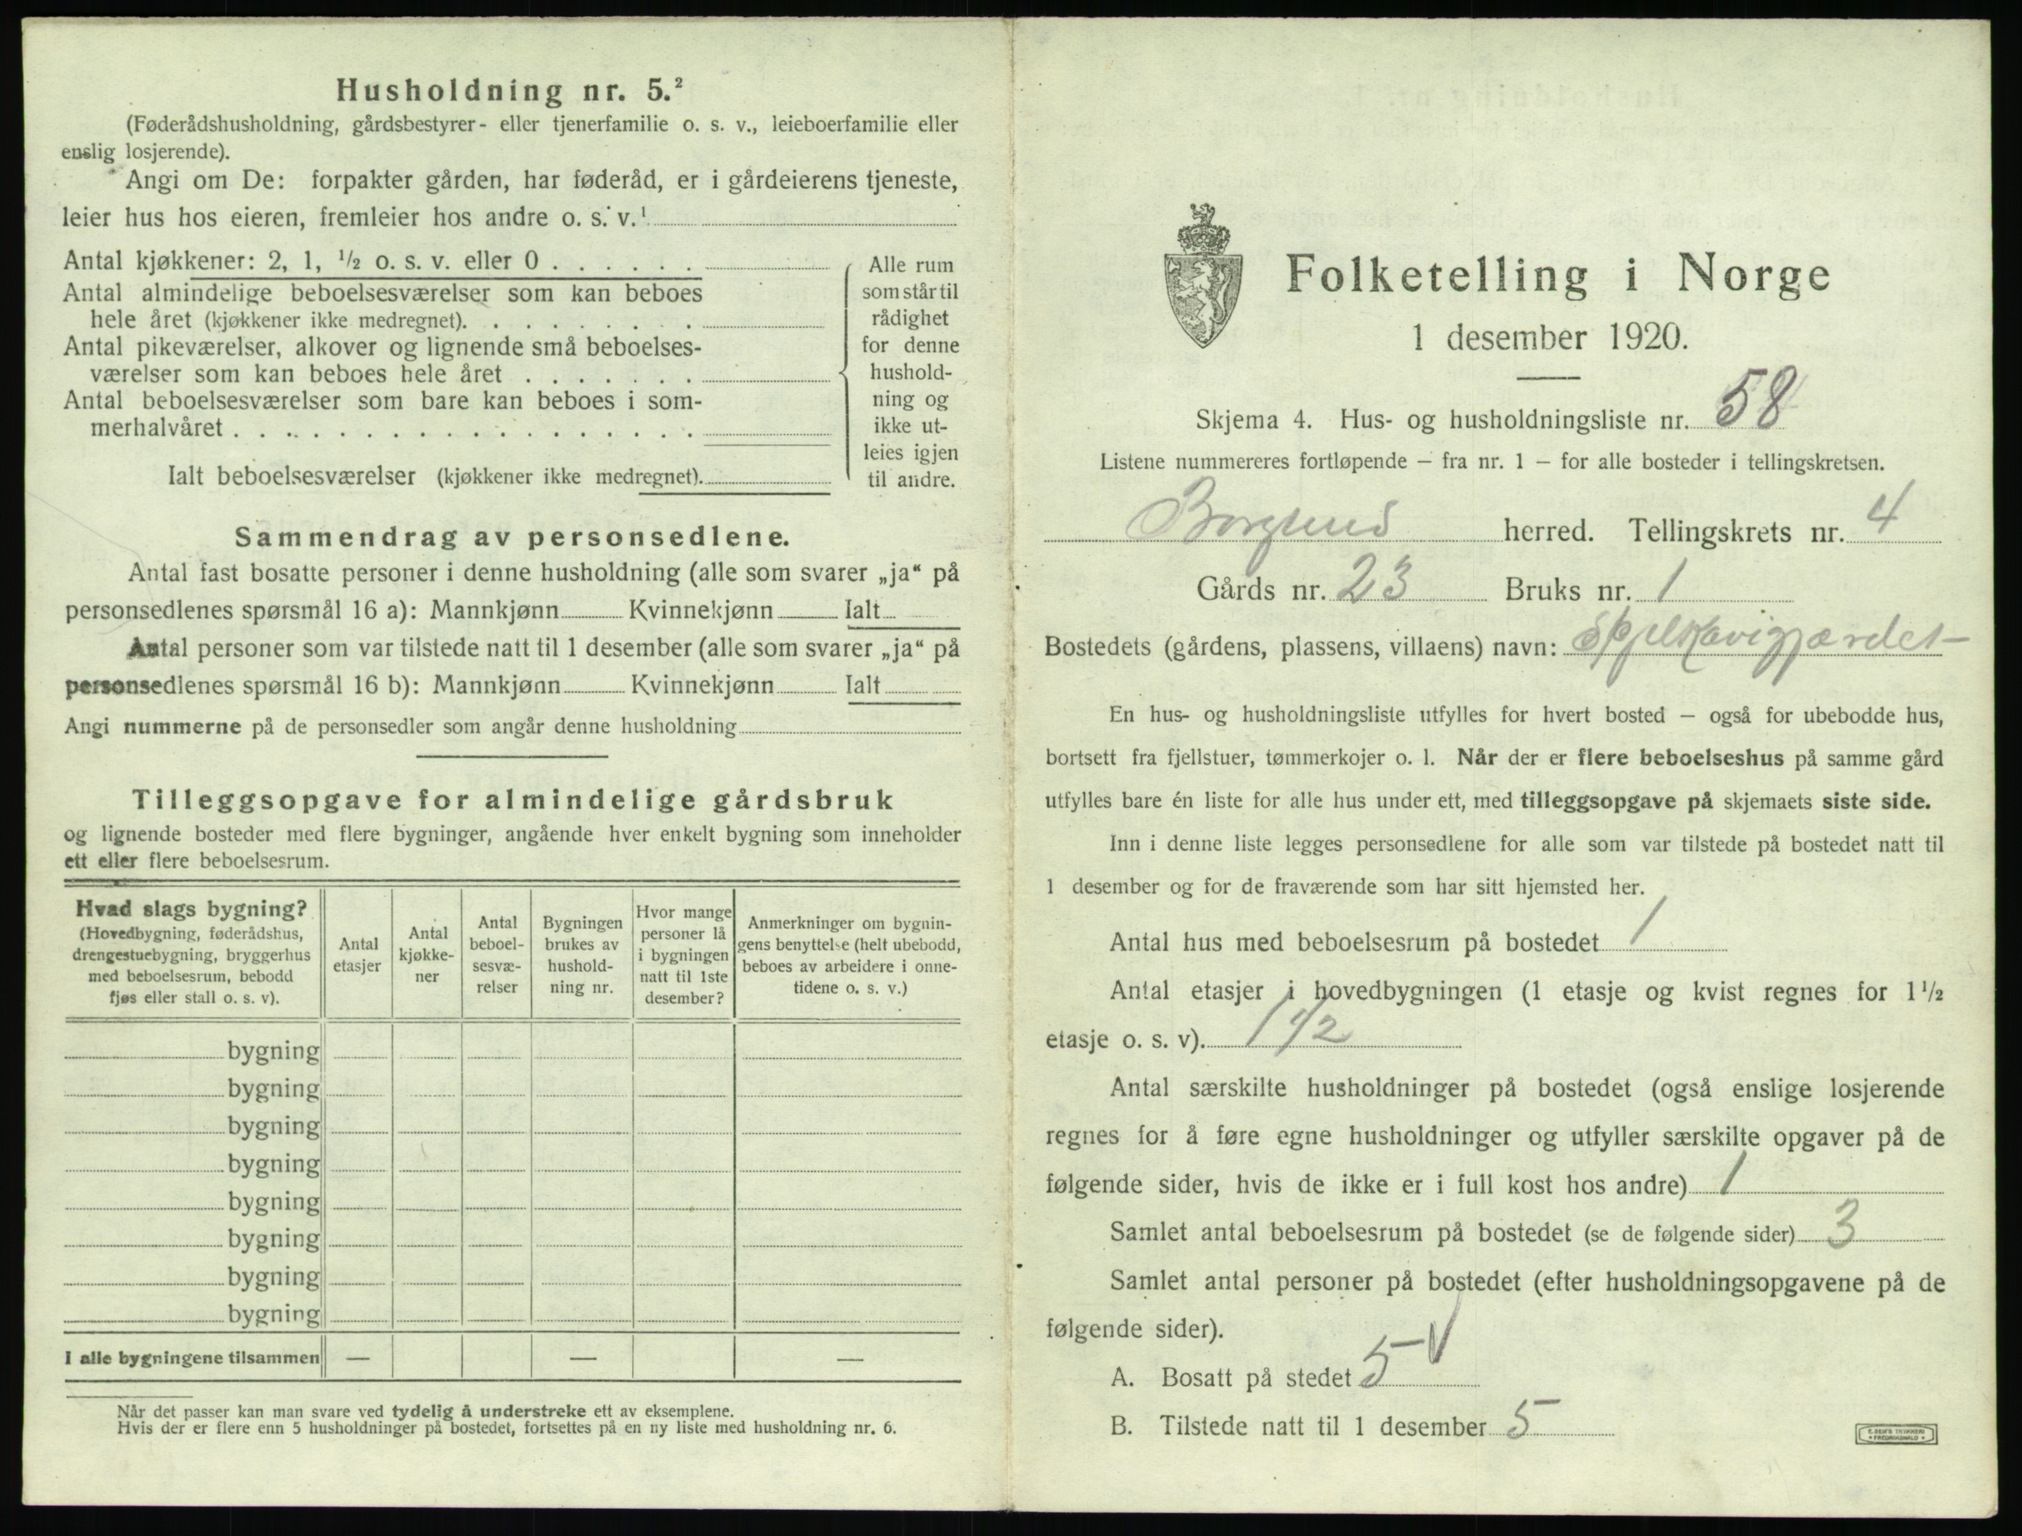 Husholdning nr. 5.²
(Føderådshusholdning, gårdsbestyrer- eller tjenerfamilie o. s. v., leieboerfamilie eller
enslig losjerende).
Angi om De: forpakter gården, har føderåd, er i gårdeierens tjeneste,
leier hus hos eieren, fremleier hos andre o. s. v.¹
Antal kjøkkener: 2, 1, ½ o. s. v. eller 0 . . . . . .
Antal almindelige beboelsesværelser som kan beboes
hele året (kjøkkener ikke medregnet). . . . . . . . .
Antal pikeværelser, alkover og lignende små beboelses-
værelser som kan beboes hele året . . . . . . .
Antal beboelsesværelser som bare kan beboes i som-
merhalvåret . . . . . . . . . . . . . . . . . .
Ialt beboelsesværelser (kjøkkener ikke medregnet).
Alle rum
som står til
rådighet
for denne
hushold-
ning og
ikke ut-
leies igjen
til andre.
Sammendrag av personsedlene.
Antal fast bosatte personer i denne husholdning (alle som svarer „ja“ på
personsedlenes spørsmål 16 a): Mannkjønn Kvinnekjønn Ialt
Antal personer som var tilstede natt til 1 desember (alle som svarer „ja“ på
personsedlenes spørsmål 16 b): Mannkjønn Kvinnekjønn Ialt
Angi nummerne på de personsedler som angår denne husholdning
Tilleggsopgave for almindelige gårdsbruk
og lignende bosteder med flere bygninger, angående hver enkelt bygning som inneholder
ett eller flere beboelsesrum.
Hvad slags bygning?
(Hovedbygning, føderådshus,
drengestuebygning, bryggerhus
med beboelsesrum, bebodd
fjøs eller stall o. s. v).
Antal
etasjer
Antal
kjøkke-
ner
Antal
beboel-
sesvæ-
relser
Bygningen
brukes av
hushold-
ning nr.
Hvor mange
personer lå
i bygningen
natt til 1ste
desember?
Anmerkninger om bygnin-
gens benyttelse (helt ubebodd,
beboes av arbeidere i onne-
tidene o. s. v.)
bygning
bygning
bygning
bygning
bygning
bygning
bygning
bygning
I alle bygningene tilsammen — — —
Når det passer kan man svare ved tydelig å understreke ett av eksemplene.
Hvis der er flere enn 5 husholdninger på bostedet, fortsettes på en ny liste med husholdning nr. 6.
Folketelling i Norge
1 desember 1920.
Skjema 4. Hus- og husholdningsliste nr. 58
Listene nummereres fortløpende – fra nr. 1 – for alle bosteder i tellingskretsen.
Borgund herred. Tellingskrets nr. 4
Gårds nr. 23 Bruks nr. 1
Bostedets (gårdens, plassens, villaens) navn: Spjelkavigjærdet
En hus- og husholdningsliste utfylles for hvert bosted – også for ubebodde hus,
bortsett fra fjellstuer, tømmerkojer o. l. Når der er flere beboelseshus på samme gård
utfylles bare én liste for alle hus under ett, med tilleggsopgave på skjemaets siste side.
Inn i denne liste legges personsedlene for alle som var tilstede på bostedet natt til
1 desember og for de fraværende som har sitt hjemsted her.
Antal hus med beboelsesrum på bostedet 1
Antal etasjer i hovedbygningen (1 etasje og kvist regnes for 1½
etasje o. s. v). 1 1/2
Antal særskilte husholdninger på bostedet (også enslige losjerende
regnes for å føre egne husholdninger og utfyller særskilte opgaver på de
følgende sider, hvis de ikke er i full kost hos andre) 1
Samlet antal beboelsesrum på bostedet (se de følgende sider) 3
Samlet antal personer på bostedet (efter husholdningsopgavene på de
følgende sider).
A. Bosatt på stedet 5 V
B. Tilstede natt til 1 desember 5